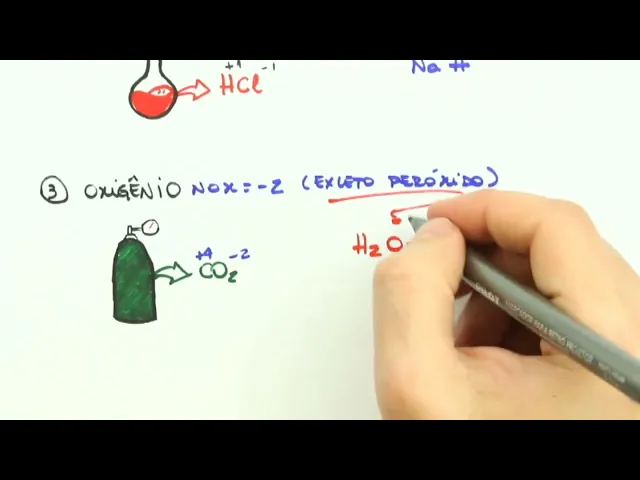 +1 -1
HCl
Na H
3 OXIGÊNIO NOX = -2 (EXCETO PERÓXIDO)
+4 -2
CO2
H2O